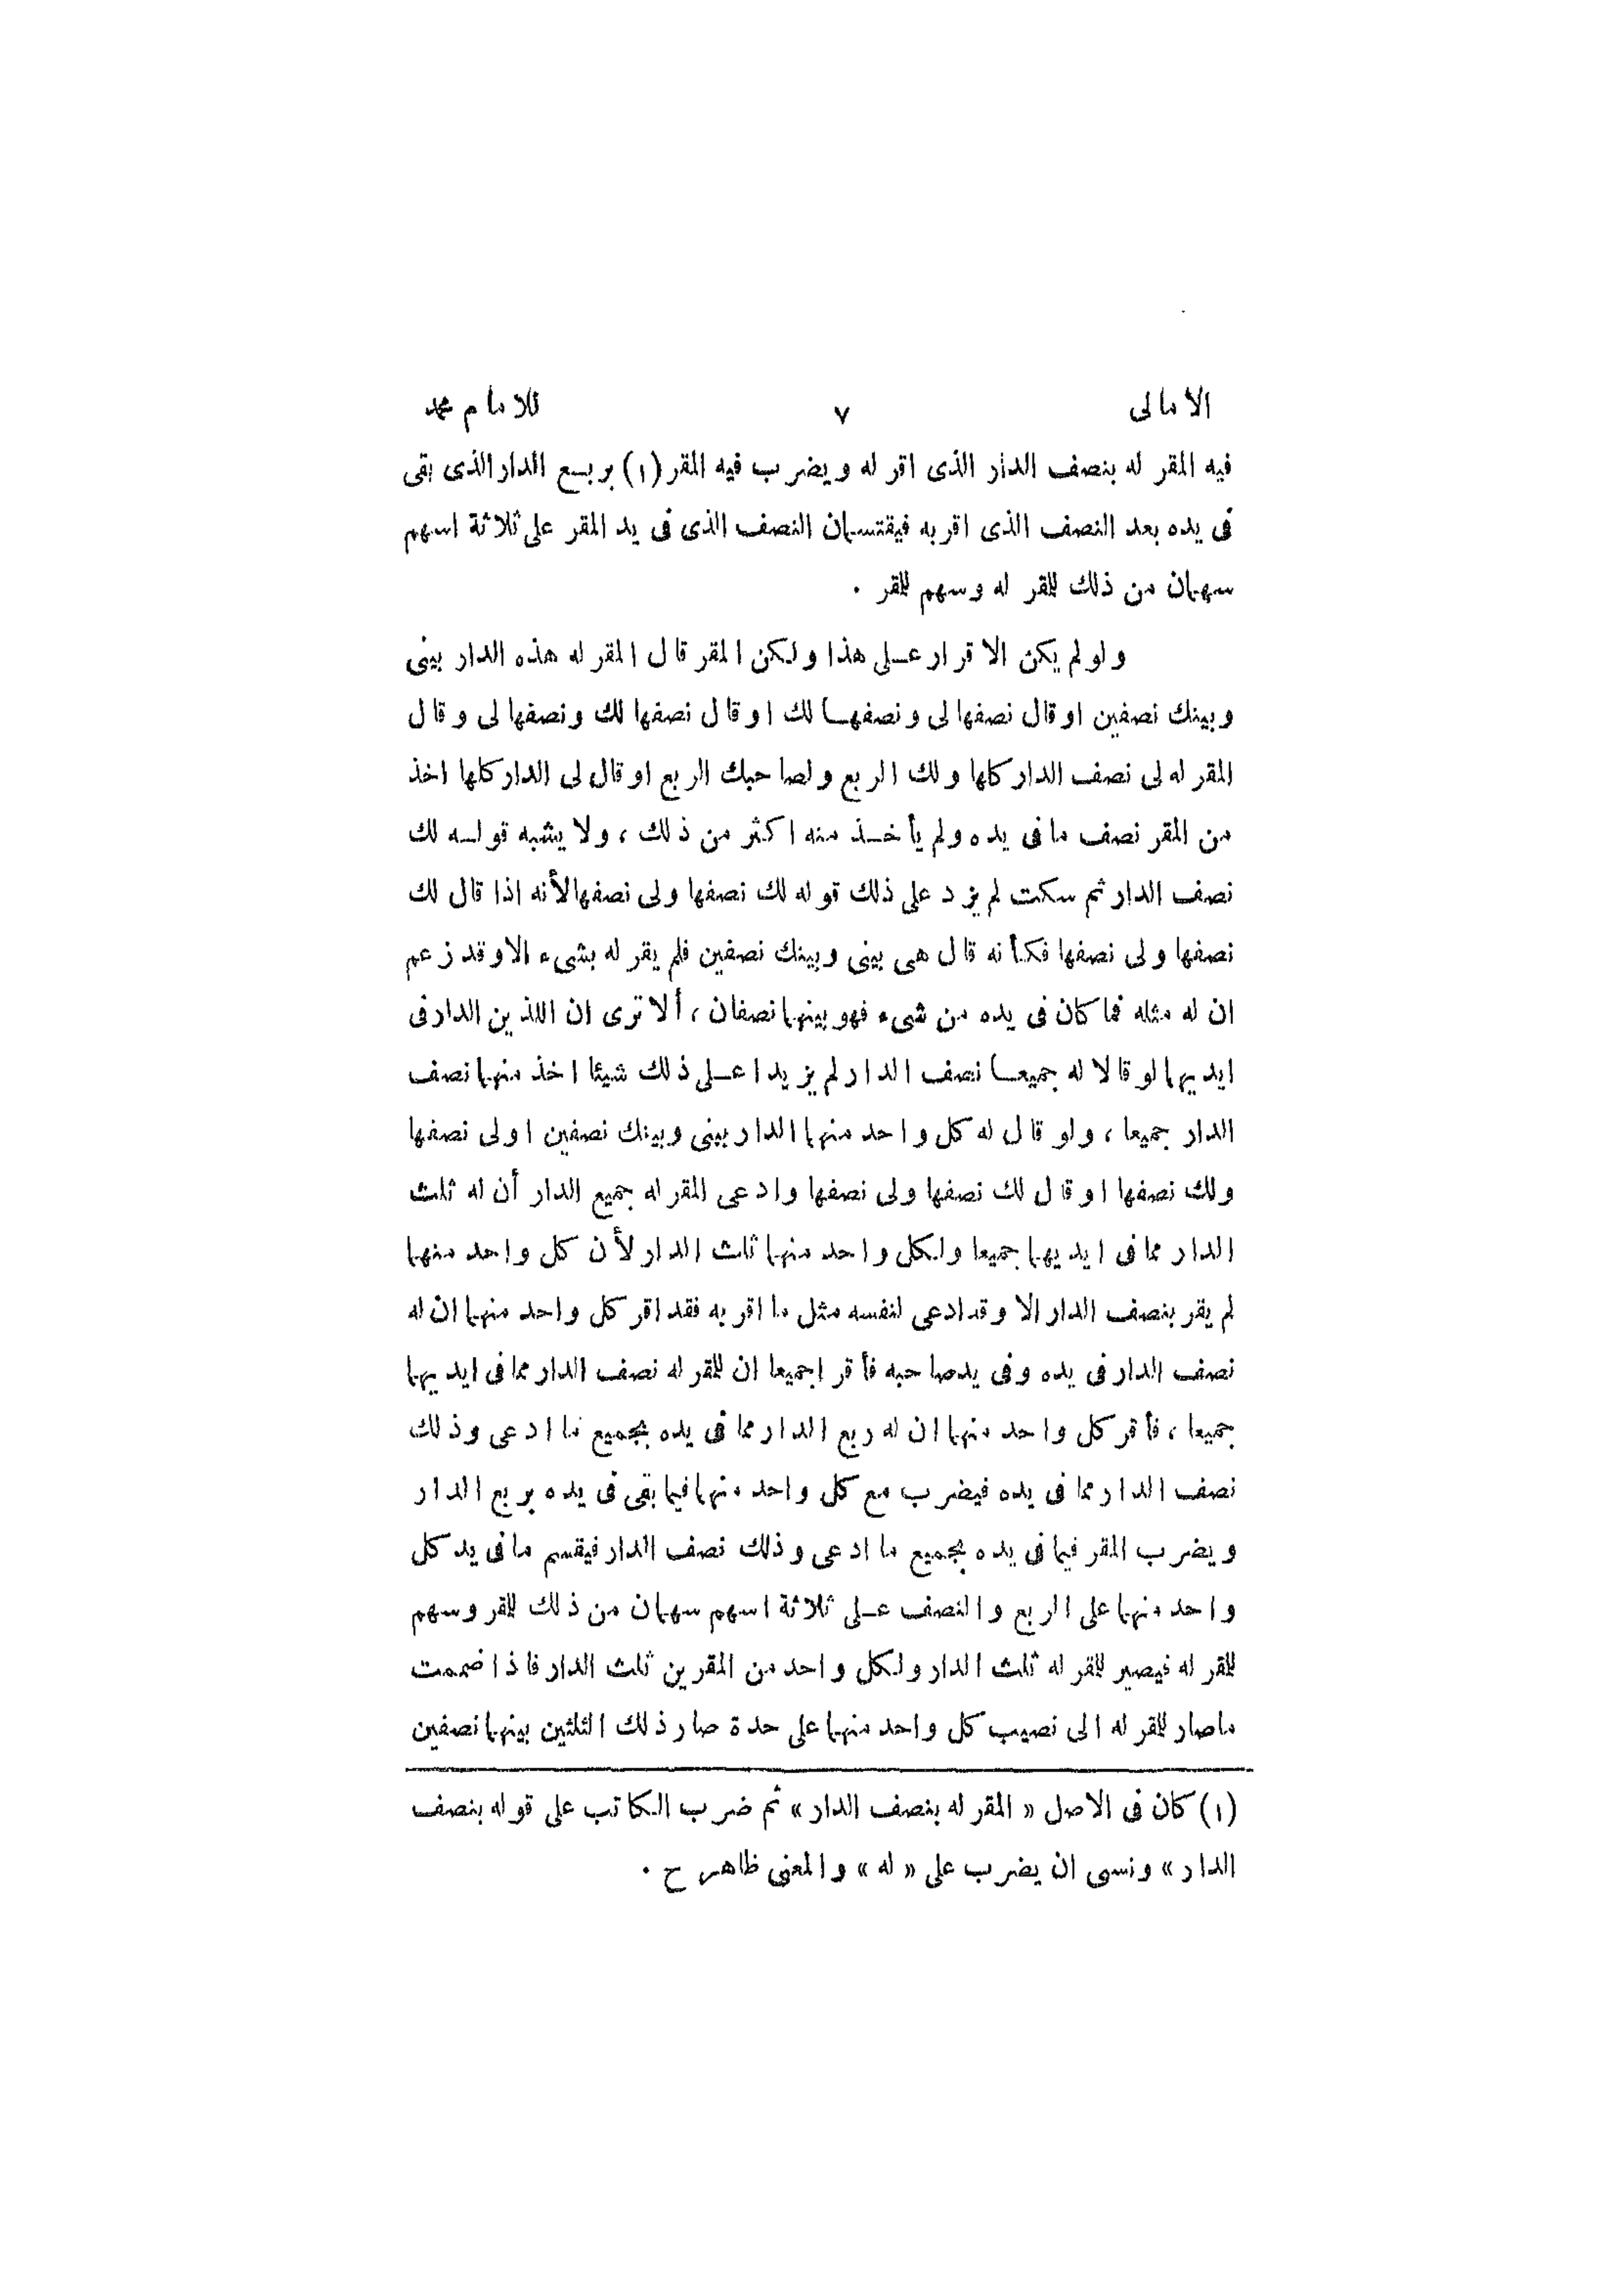 الامالى ٧ للامام محمد
فيه المقر له بنصف الدار الذى اقر له ويضرب فيه المقر (١) بربع الدار الذى بقى
فى يده بعد النصف الذى اقر به فيقتسمان النصف الذى فى يد المقر على ثلاثة اسهم
سهمان من ذلك للقر له وسهم للقر .
ولو لم يكن الاقرار على هذا ولكن المقر قال المقر له هذه الدار بينى
وبينك نصفين او قال نصفها لى ونصفها لك او قال نصفها لك ونصفها لى وقال
المقر له لى نصف الدار كلها ولك الربع ولصاحبك الربع او قال لى الدار كلها اخذ
من المقر نصف ما فى يده ولم يأخذ منه اكثر من ذلك ، ولا يشبه قوله لك
نصف الدار ثم سكت لم يزد على ذلك قوله لك نصفها ولى نصفها لأنه اذا قال لك
نصفها ولى نصفها فكأنه قال هى بينى وبينك نصفين فلم يقر له بشىء الا وقد زعم
ان له مثله فما كان فى يده من شىء فهو بينهما نصفان ، ألا ترى ان اللذين الدار فى
ايديهما لو قالا له جميعا نصف الدار لم يزيدا على ذلك شيئا اخذ منهما نصف
الدار جميعا ، ولو قال له كل واحد منهما الدار بينى وبينك نصفين او لى نصفها
ولك نصفها او قال لك نصفها ولى نصفها وادعى المقر له جميع الدار أن له ثلث
الدار مما فى ايديهما جميعا ولكل واحد منهما ثلث الدار لأن كل واحد منهما
لم يقر بنصف الدار الا وقد ادعى لنفسه مثل ما اقر به فقد اقر كل واحد منهما ان له
نصف الدار فى يده وفى يد صاحبه فأقرا جميعا ان للقر له نصف الدار مما فى ايديهما
جميعا ، فأقر كل واحد منهما ان له ربع الدار مما فى يده بجميع ما ادعى وذلك
نصف الدار مما فى يده فيضرب مع كل واحد منهما فيما بقى فى يده بربع الدار
ويضرب المقر فيما فى يده بجميع ما ادعى وذلك نصف الدار فيقسم ما فى يد كل
واحد منهما على الربع والنصف على ثلاثة اسهم سهمان من ذلك للقر وسهم
للقر له فيصير للقر له ثلث الدار ولكل واحد من المقرين ثلث الدار فاذا ضممت
ماصار للقر له الى نصيب كل واحد منهما على حدة صار ذلك الثلثين بينهما نصفين
(١) كان فى الاصل « المقر له بنصف الدار » ثم ضرب الكاتب على قوله بنصف
الدار » ونسى ان يضرب على « له » والمعنى ظاهر ح .